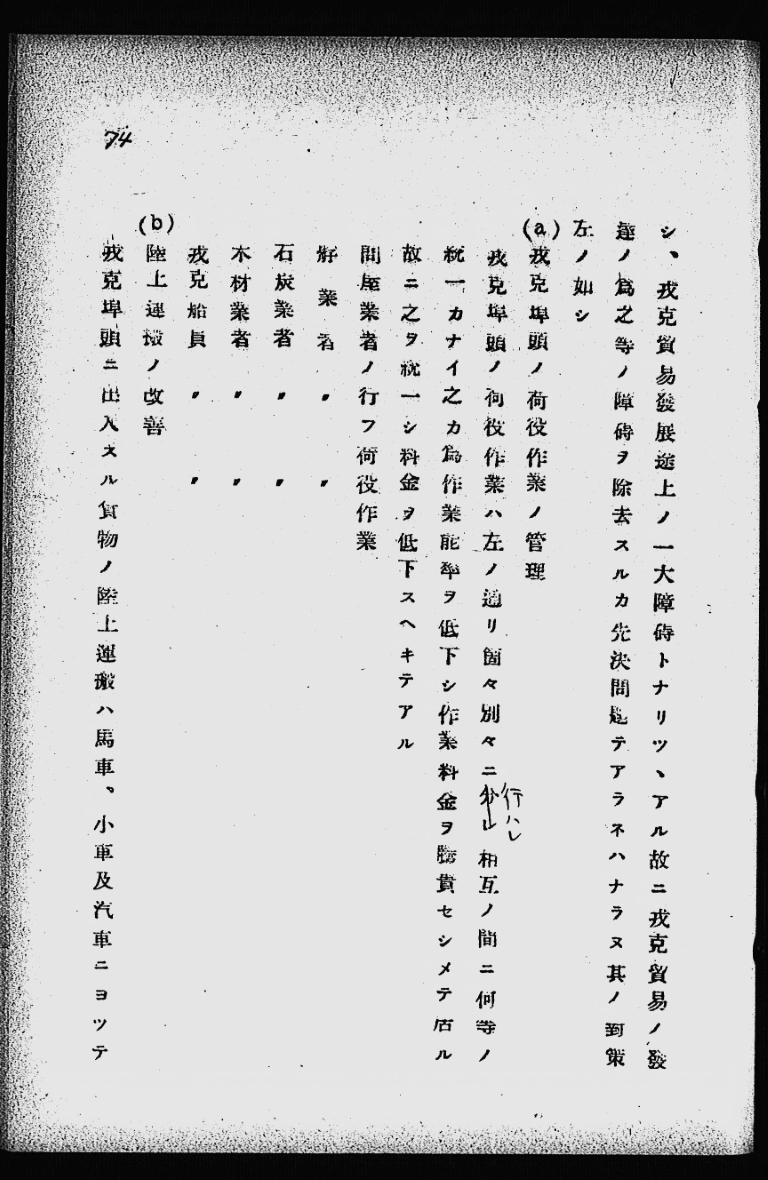 74
シ、戎克貿易發展途上ノ一大障碍トナリツヽアル故ニ戎克貿易ノ發
達ノ爲之等ノ障碍ヲ除去スルカ先決問題テアラネハナラヌ其ノ對策
左ノ如シ
(a)戎克埠頭ノ荷役作業ノ管理
戎克埠頭ノ荷役作業ハ左ノ通リ箇々別々ニ分レ行ハレ相互ノ間ニ何等ノ
統一カナイ之カ爲作業能率ヲ低下シ作業料金ヲ騰貴セシメテ居ル
故ニ之ヲ統一シ料金ヲ低下スヘキテアル
問屋業者ノ行フ荷役作業
業者〃〃
石炭業者〃〃
木材業者〃〃
戎克船員〃〃
(b)陸上運搬ノ改善
戎克埠頭ニ出入スル貨物ノ陸上運搬ハ馬車、小車及汽車ニヨツテ